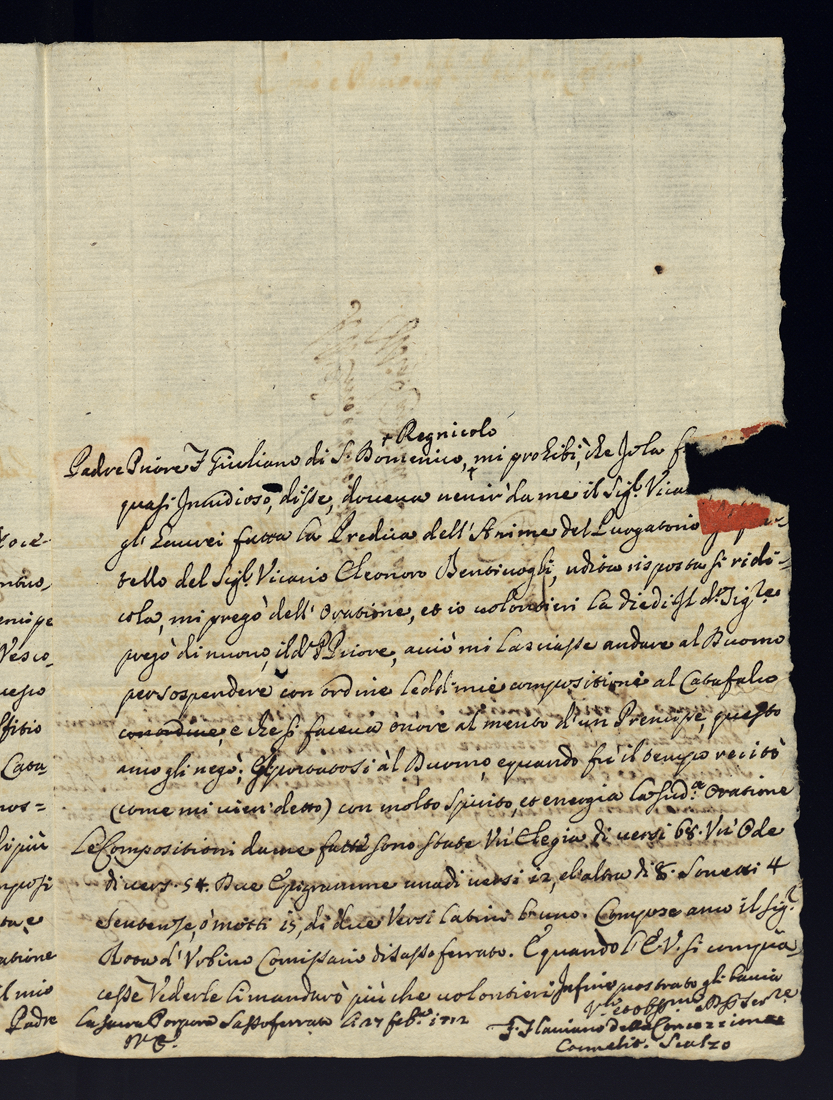 Regnicolo
Padre Priore F Giuliano di S. Domenico, mi prohibì, che Jo la f
quasi Invidioso, disse, doveva venir da me il Sig.r Vica
gli havrei fatta la Predica dell'Anime del Purgatorio
tello del Sig.r Vicario Eleonoro Bentivogli, udita risposta sì ridi-
cola, mi pregò dell'Oratione, et io volontieri la diedi, Il d.o Sig.re
pregò di nuovo, il d.o P. Priore, acciò mi lasciasse andare al Duomo
per sospendere con ordine le dd. mie compositioni al Catafalco
con ordine, e che si faceva onore al merito d'un Prencipe, questo
anco gli negò; portatosi àl Duomo, e quando fù il tempo recitò
(come mi vien detto) con molto spirito, et energia la sud.a Oratione
Le Compositioni da me fatte sono state Vn'Elegia di versi 68. Vn'Ode
di vers. 54. Due Epigramme una di versi 12, e l'altra di 8. Sonetti 4
Sentenze, ò motti 15, di due Versi latini l'uno. Compose anco il Sig.r
Rosa d'Vrbino Comissario di Sassoferrato. E quando l'E.V. si compia
cesse Vederle li mandarò più che volontieri Infine prostrato gli bacio
la sacra Porpora Sassoferrato li 27 feb.ro 1712
V.E.
F. Flaviano della Concezzione
Carmelit. Scalzo
Stoce-
encipe
Vesco,
Cata-
nos=
di più
mposi
ta e
atione
il mio
Padre